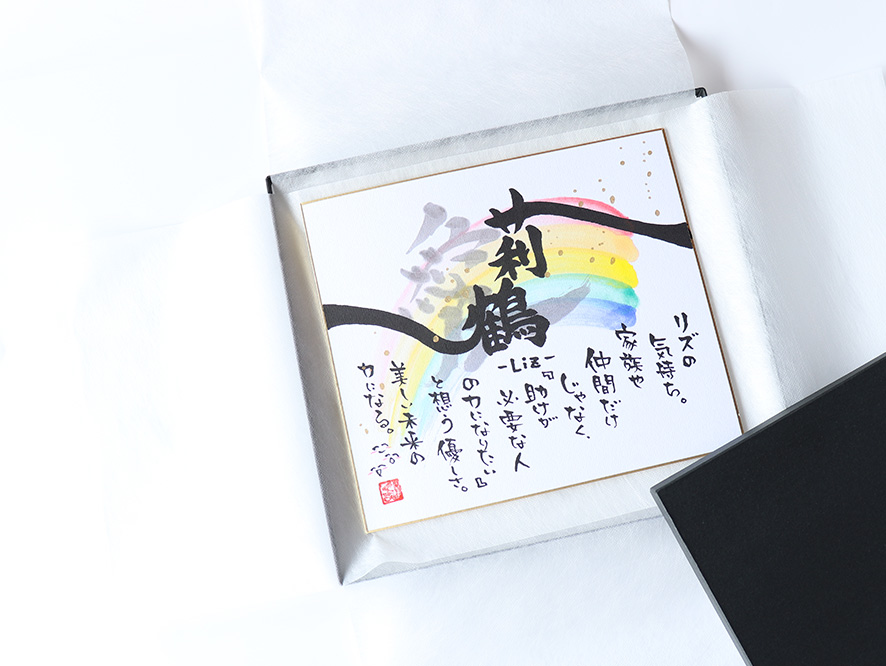 莉鶴
-Liz-
リズの
気持ち。
家族や
仲間だけ
じゃなく、
『助けが
必要な人
の力になりたい』
と想う優しさ。
美しい未来の
力になる。